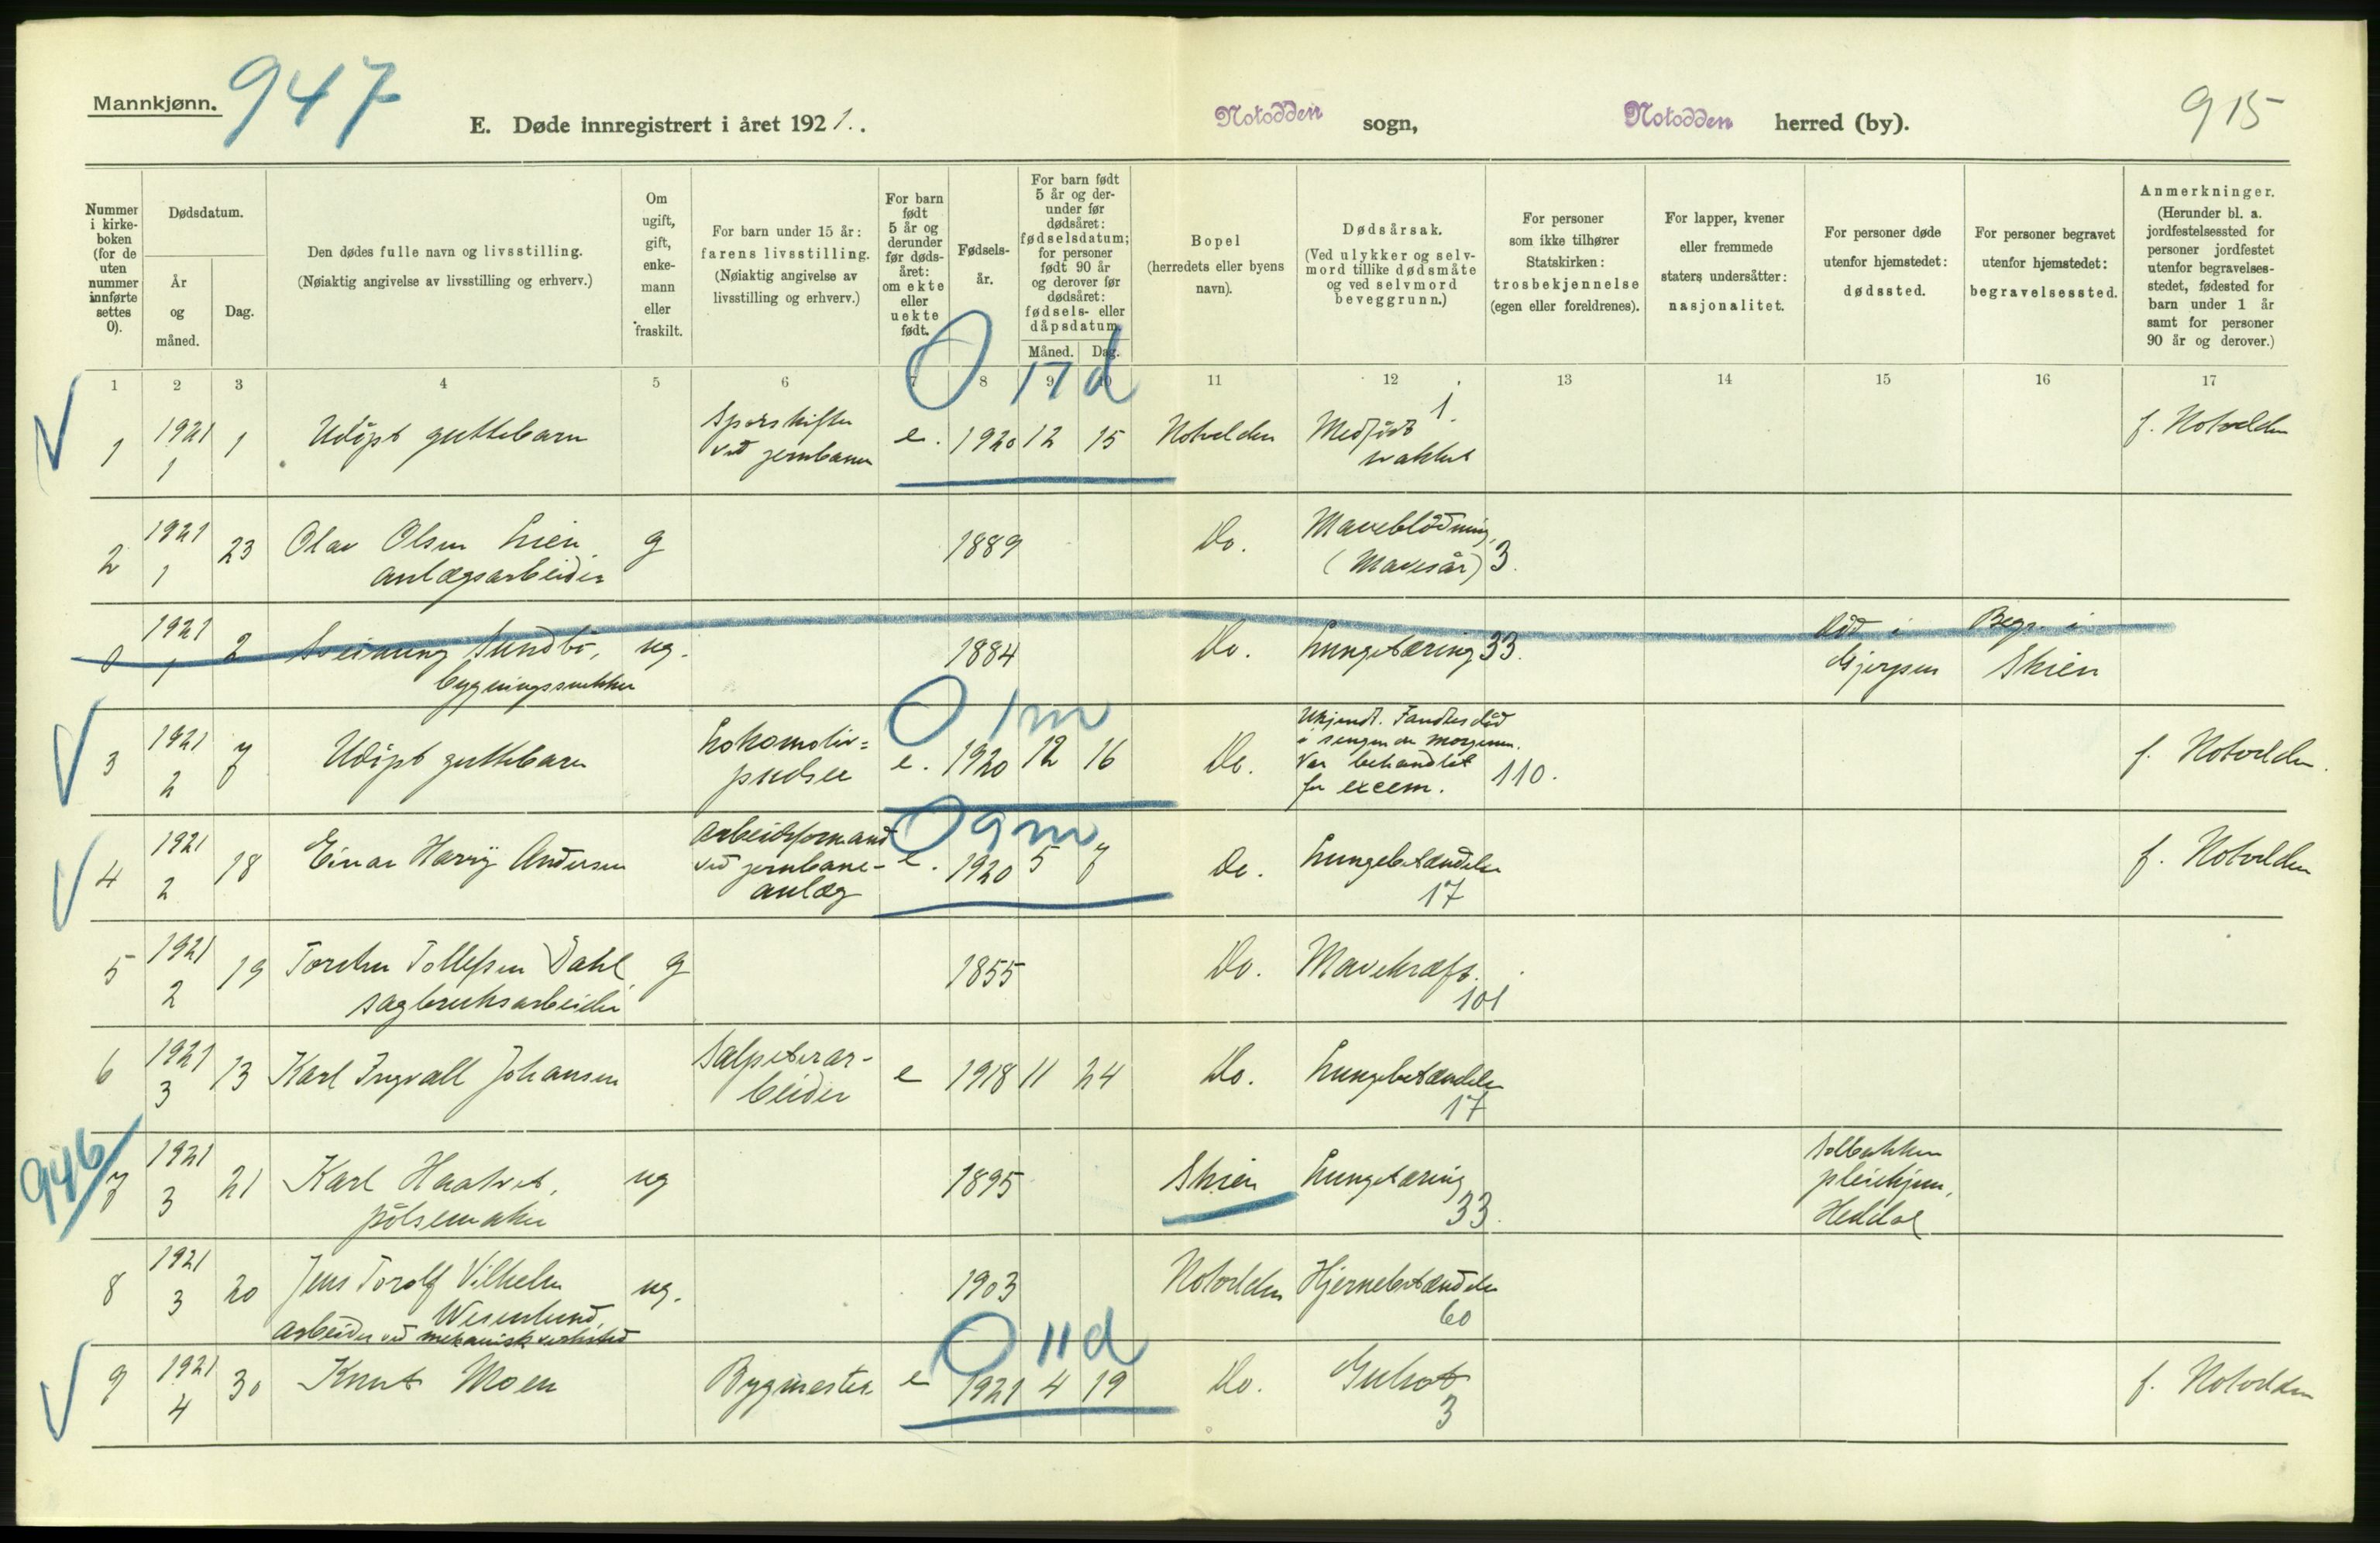 Mannkjønn.
947
E. Døde innregistrert i året 1921.
Notodden sogn,
Notodden herred (by).
915
Nummer i kirkeboken (for de uten nummer innførte settes 0).
Dødsdatum.
År og måned.
Dag.
Den dødes fulle navn og livsstilling.
(Nøiaktig angivelse av livsstilling og erhverv.)
Om ugift, gift, enkemann eller fraskilt.
For barn under 15 år:
farens livsstilling.
(Nøiaktig angivelse av livsstilling og erhverv.)
For barn født 5 år og derunder før dødsåret: om ekte eller uekte født.
Fødselsår.
For barn født 5 år og derunder før dødsåret: fødselsdatum; for personer født 90 år og derover før dødsåret: fødsels- eller dåpsdatum.
Måned. Dag.
Bopel
(herredets eller byens navn).
Dødsårsak.
(Ved ulykker og selvmord tillike dødsmåte og ved selvmord beveggrunn.)
For personer som ikke tilhører Statskirken:
trosbekjennelse
(egen eller foreldrenes).
For lapper, kvener eller fremmede staters undersåtter:
nasjonalitet.
For personer døde utenfor hjemstedet:
dødssted.
For personer begravet utenfor hjemstedet:
begravelsessted.
Anmerkninger.
(Herunder bl. a. jordfestelsessted for personer jordfestet utenfor begravelsesstedet, fødested for barn under 1 år samt for personer 90 år og derover.)
1 2 3 4 5 6 7 8 9 10 11 12 13 14 15 16 17
0 17 d
1 1921 1 1 Udöpt guttebarn Sporskifter ved jernbanen e. 1920 12 15 Notodden Medfödt svakhet 1. f. Notodden
2 1921 1 23 Olav Olsen Lien, anlægsarbeider g 1889 Do. Maveblödning, (Mavesår) 3.
0 1921 1 2 Sveinung Sundbö, bygningssnekker ug. 1884 Do. Lungetæring 33. Död i Gjerpen Begr. i Skien
0 1 m
3 1921 2 7 Udöpt guttebarn Lokomotivpudser e. 1920 12 16 Do. Ukjendt. Fandtes död i sengen om morgenen. Var behandlet for excem. 110. f. Notodden.
0 9 m
4 1921 2 18 Einar Harry Andersen Arbeidsformand ved jernbaneanlæg e. 1920 5 7 Do. Lungebetændelse 17 f. Notodden
5 1921 2 19 Tollefsen Dahl sagbruksarbeider g 1855 Do. Mavekræft. 101
6 1921 3 13 Karl Ingvald Johansen Salpeterarbeider e 1918 11 24 Do. Lungebetændelse 17
946
7 1921 3 21 Karl Haatvet, pölsemaker ug 1895 Skien Lungetæring 33. Solbakken pleiehjem, Heddal
8 1921 3 20 Jens Torolf Vilhelm Wesenlund, arbeider ved mekanisk verksted ug. 1903 Notodden Hjernebetændelse 60
0 11 d
9 1921 4 30 Knut Moen Bygmester e 1921 4 19 Do. Gulsot 3 f. Notodden